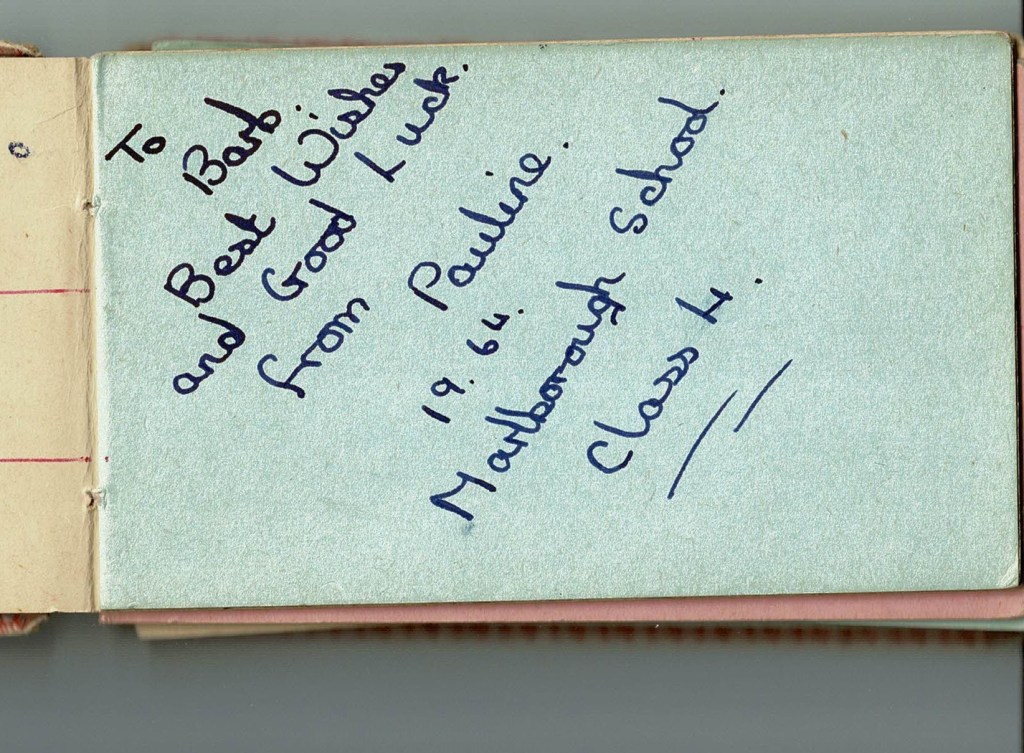 To
Barb.
Best Wishes
and Good Luck.
from Pauline.
19.64.
Marlborough School.
Class 4.